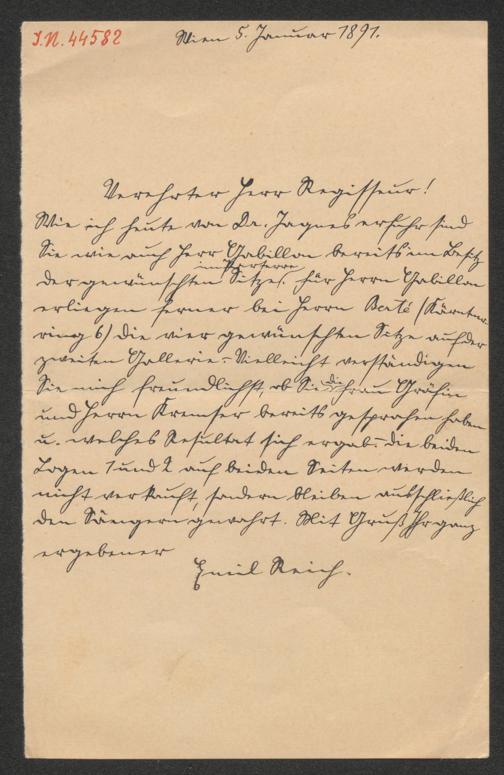 I.N. 44582
Wien 5. Januar 1891.
Verehrter Herr Regisseur!
Wie ich heute von Dr. Jaques erfuhr sind
Sie wie auch Herr Gabillon bereits im Besitz
im Parterre
der gewünschten Sitze. Für Herrn Gabillon
erliegen ferner bei Herrn Baté (Kärntner-
ring 6) die vier gewünschten Sitze auf der
zweiten Gallerie. Vielleicht verständigen
Sie mich freundlichst, ob Sie die Frau Gräfin
und Herrn Kremser bereits gesprochen haben
u. welches Resultat sich ergab. Die beiden
Logen 1 und 2 auf beiden Seiten werden
nicht verkauft, sondern bleiben ausschließlich
den Sängern gewahrt. Mit Gruß Ihr ganz
ergebener
Emil Reich.